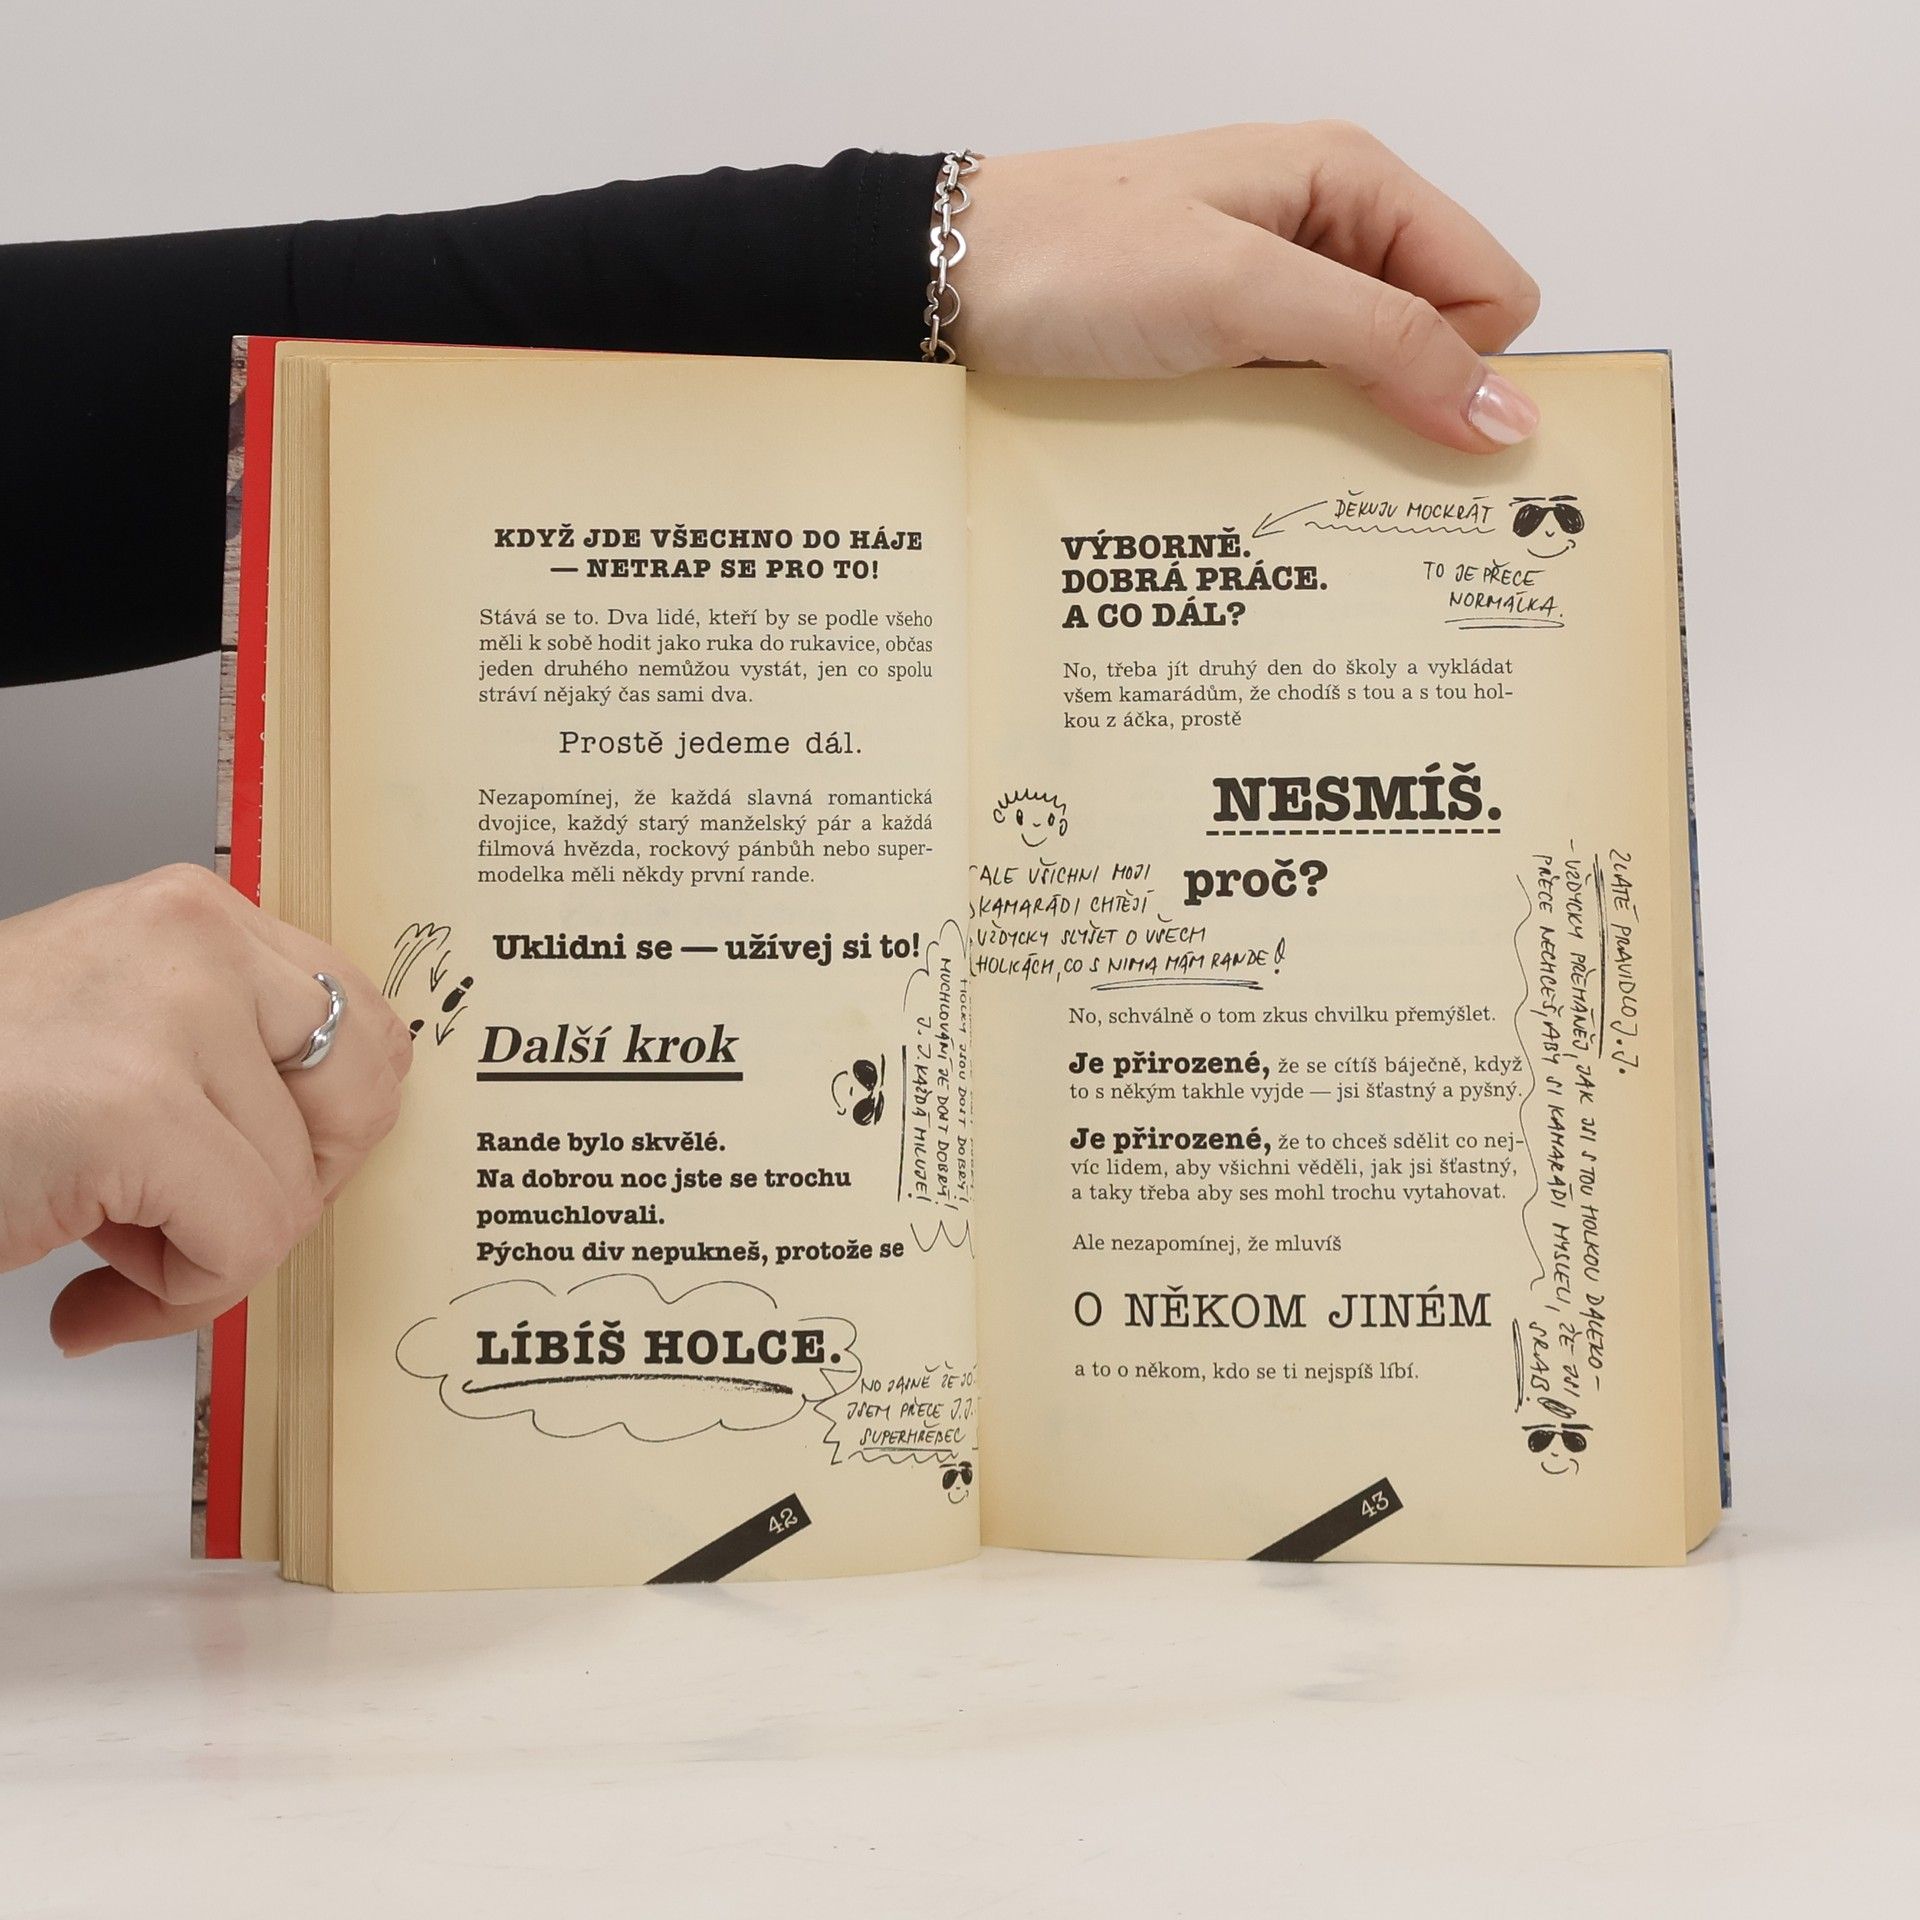 KDYŽ JDE VŠECHNO DO HÁJE
— NETRAP SE PRO TO!
Stává se to. Dva lidé, kteří by se podle všeho
měli k sobě hodit jako ruka do rukavice, občas
jeden druhého nemůžou vystát, jen co spolu
stráví nějaký čas sami dva.
Prostě jedeme dál.
Nezapomínej, že každá slavná romantická
dvojice, každý starý manželský pár a každá
filmová hvězda, rockový pánbůh nebo super-
modelka měli někdy první rande.
Uklidni se — užívej si to!
Další krok
HOLKY JSOU DOST DOBRÝ!
MUCHLOVÁNÍ JE DOST DOBRÝ!
J. J. KAŽDÁ MILUJE!
Rande bylo skvělé.
Na dobrou noc jste se trochu
pomuchlovali.
Pýchou div nepukneš, protože se
LÍBÍŠ HOLCE.
NO JASNĚ ŽE JO
JSEM PŘECE J.J.
SUPERHŘEBEC
42
DĚKUJU MOCKRÁT
VÝBORNĚ.
DOBRÁ PRÁCE.
A CO DÁL?
TO JE PŘECE
NORMÁLKA.
No, třeba jít druhý den do školy a vykládat
všem kamarádům, že chodíš s tou a s tou hol-
kou z áčka, prostě
NESMÍŠ.
proč?
ALE VŠICHNI MOJI
KAMARÁDI CHTĚJÍ
VŽDYCKY SLYŠET O VŠECH
HOLKÁCH, CO S NIMA MÁM RANDE!
No, schválně o tom zkus chvilku přemýšlet.
Je přirozené, že se cítíš báječně, když
to s někým takhle vyjde — jsi šťastný a pyšný.
Je přirozené, že to chceš sdělit co nej-
víc lidem, aby všichni věděli, jak jsi šťastný,
a taky třeba aby ses mohl trochu vytahovat.
Ale nezapomínej, že mluvíš
O NĚKOM JINÉM
a to o někom, kdo se ti nejspíš líbí.
ZLATÉ PRAVIDLO J.J.
- VŽDYCKY PŘEHÁNĚJ, JAK JSI S TOU HOLKOU DALEKO -
PŘECE NECHCEŠ, ABY SI KAMARÁDI MYSLELI, ŽE JSI
SRAB!
43